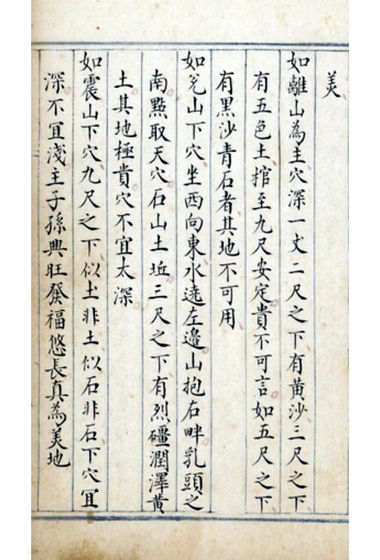 美
如離山為主穴深一丈二尺之下有黃沙三尺之下
有五色土棺至九尺安定貴不可言如五尺之下
有黑沙青石者其地不可用
如兌山下穴坐西向東水遶左邉山抱右畔乳頭之
南㸃取天穴石山土垢三尺之下有烈礓潤澤黃
土其地極貴穴不宜太深
如震山下穴九尺之下似土非土似石非石下穴宜
深不宜淺主子孫興旺發福悠長真為美地